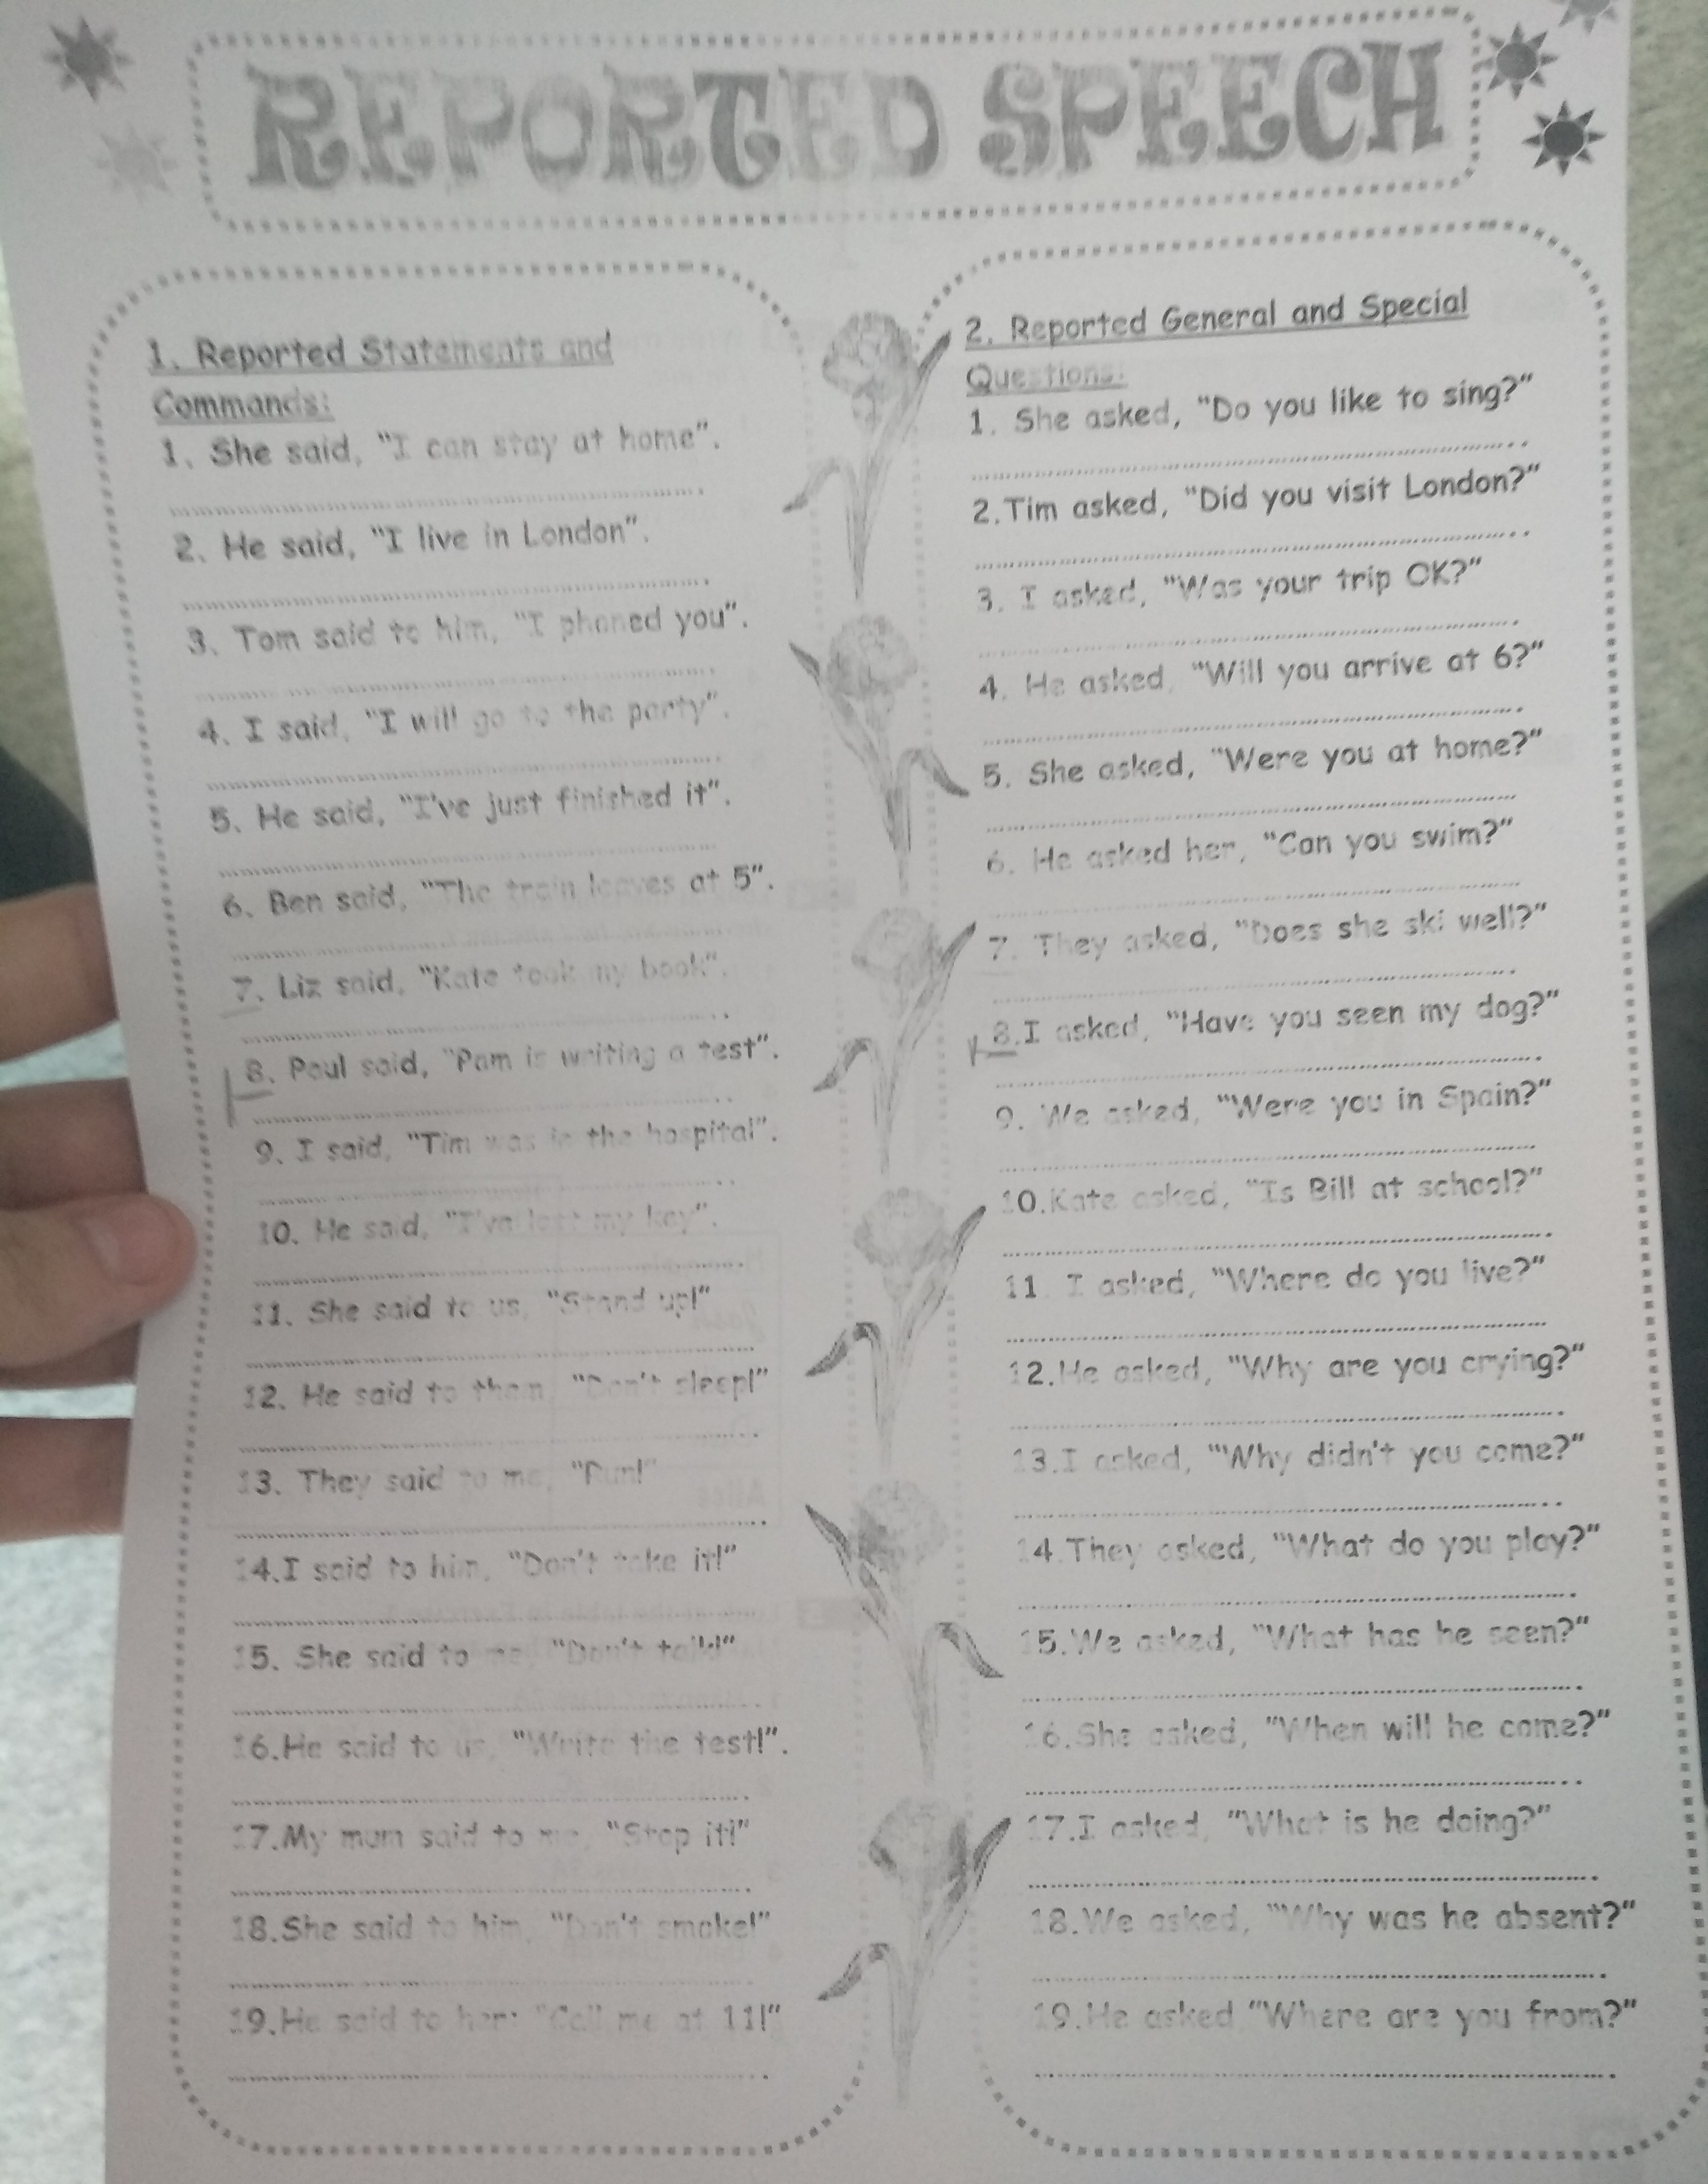 REPORTED SPEECH
1. Reported Statements and
Commands:
1. She said, "I can stay at home".
2. He said, "I live in London".
3. Tom said to him, "I phoned you".
4. I said, "I will go to the party".
5. He said, "I've just finished it".
6. Ben said, "The train leaves at 5".
7. Liz said, "Kate took my book".
8. Paul said, "Pam is writing a test".
9. I said, "Tim was in the hospital".
10. He said, "I've lost my key".
11. She said to us, "Stand up!"
12. He said to them, "Don't sleep!"
13. They said to me, "Run!"
14.I said to him, "Don't take it!"
15. She said to me, "Don't talk!"
16.He said to us, "Write the test!".
17.My mum said to me, "Stop it!"
18.She said to him, "Don't smoke!"
19.He said to her: "Call me at 11!"
2. Reported General and Special
Questions:
1. She asked, "Do you like to sing?"
2.Tim asked, "Did you visit London?"
3. I asked, "Was your trip OK?"
4. He asked, "Will you arrive at 6?"
5. She asked, "Were you at home?"
6. He asked her, "Can you swim?"
7. They asked, "Does she ski well?"
8.I asked, "Have you seen my dog?"
9. We asked, "Were you in Spain?"
10.Kate asked, "Is Bill at school?"
11. I asked, "Where do you live?"
12.He asked, "Why are you crying?"
13.I asked, "'Why didn't you come?"
14.They asked, "What do you play?"
15.We asked, "What has he seen?"
16.She asked, "When will he come?"
17.I asked, "What is he doing?"
18.We asked, "Why was he absent?"
19.He asked "Where are you from?"